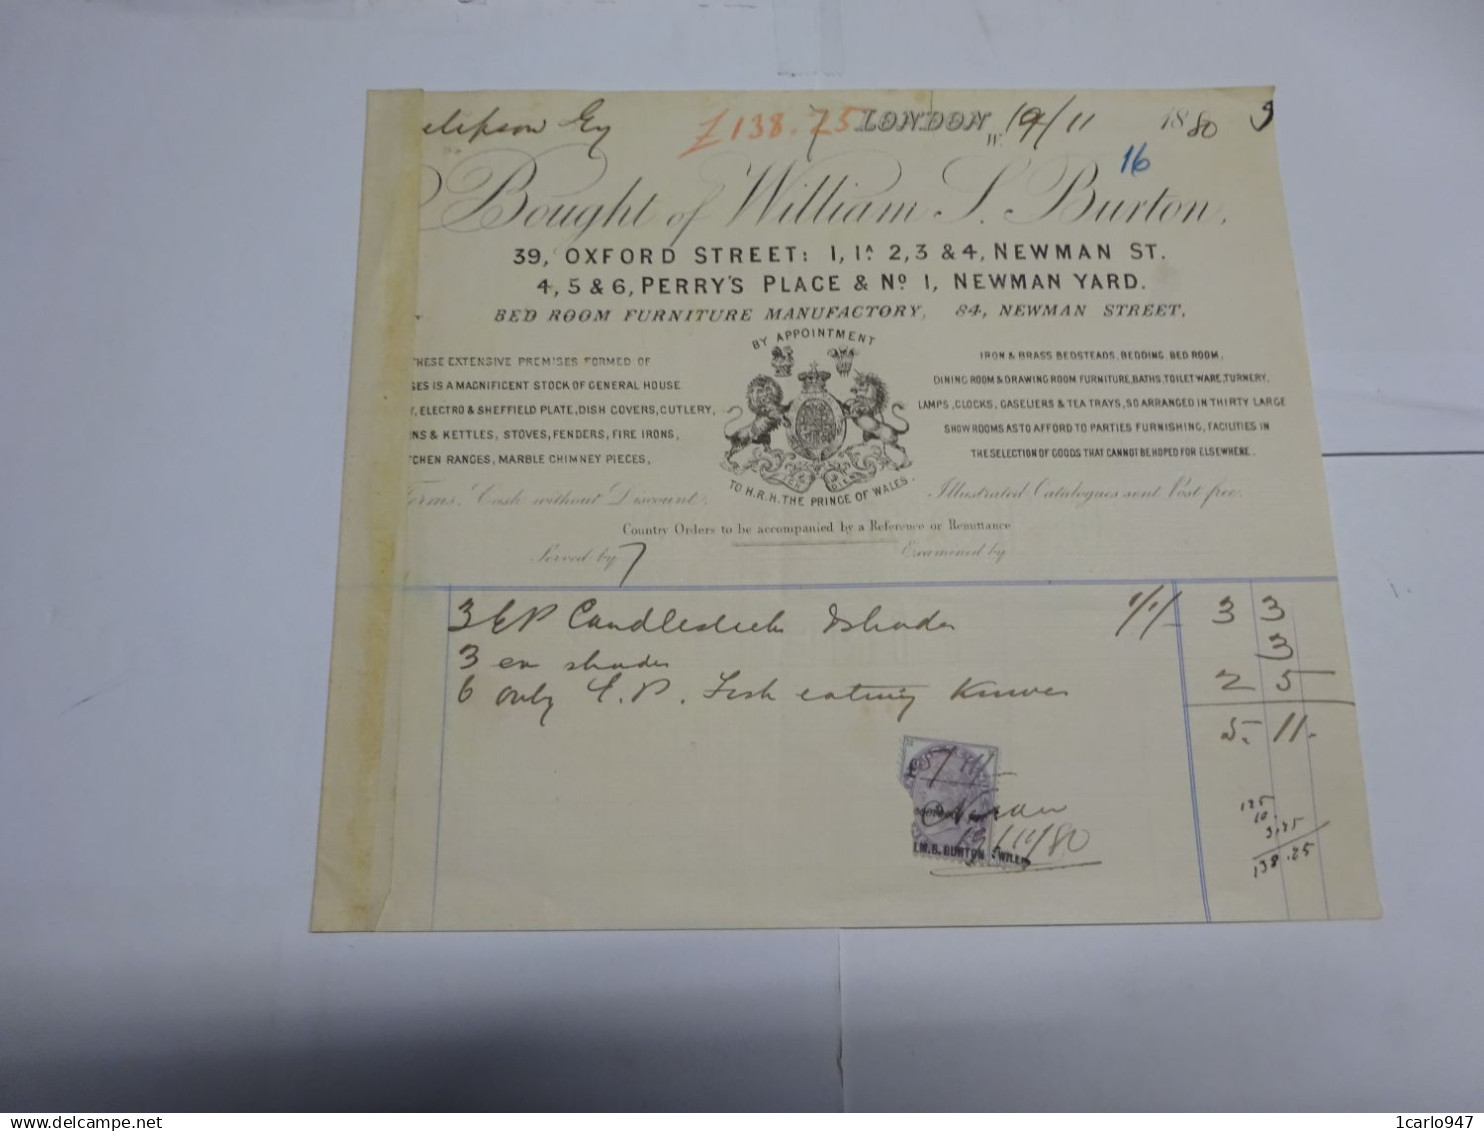 Esq £138.75 LONDON W. 19/11 1880 3
16
Bought of William S. Burton,
39, OXFORD STREET: 1, 1A 2, 3 & 4, NEWMAN ST.
4, 5 & 6, PERRY'S PLACE & No 1, NEWMAN YARD.
BED ROOM FURNITURE MANUFACTORY, 84, NEWMAN STREET,
BY APPOINTMENT
THESE EXTENSIVE PREMISES FORMED OF
GES IS A MAGNIFICENT STOCK OF GENERAL HOUSE
Y, ELECTRO & SHEFFIELD PLATE, DISH COVERS, CUTLERY,
NS & KETTLES, STOVES, FENDERS, FIRE IRONS,
CHEN RANGES, MARBLE CHIMNEY PIECES,
ICH DIEN
TO H.R.H. THE PRINCE OF WALES.
IRON & BRASS BEDSTEADS, BEDDING, BED ROOM,
DINING ROOM & DRAWING ROOM FURNITURE, BATHS, TOILET WARE, TURNERY,
LAMPS, CLOCKS, GASELIERS & TEA TRAYS, SO ARRANGED IN THIRTY LARGE
SHOW ROOMS AS TO AFFORD TO PARTIES FURNISHING, FACILITIES IN
THE SELECTION OF GOODS THAT CANNOT BE HOPED FOR ELSEWHERE.
Terms, Cash without Discount,
Illustrated Catalogues sent Post free.
Country Orders to be accompanied by a Reference or Remittance
Served by 7 Examined by
3 EP Candlesticks & Shades 1/1/ 3 3
3 ex shades 3
6 only E.P. Fish eating Knives 2 5
5. 11.
19/11/80
M.B. BURTON
125
10.
3.25
138.25
1carlo947